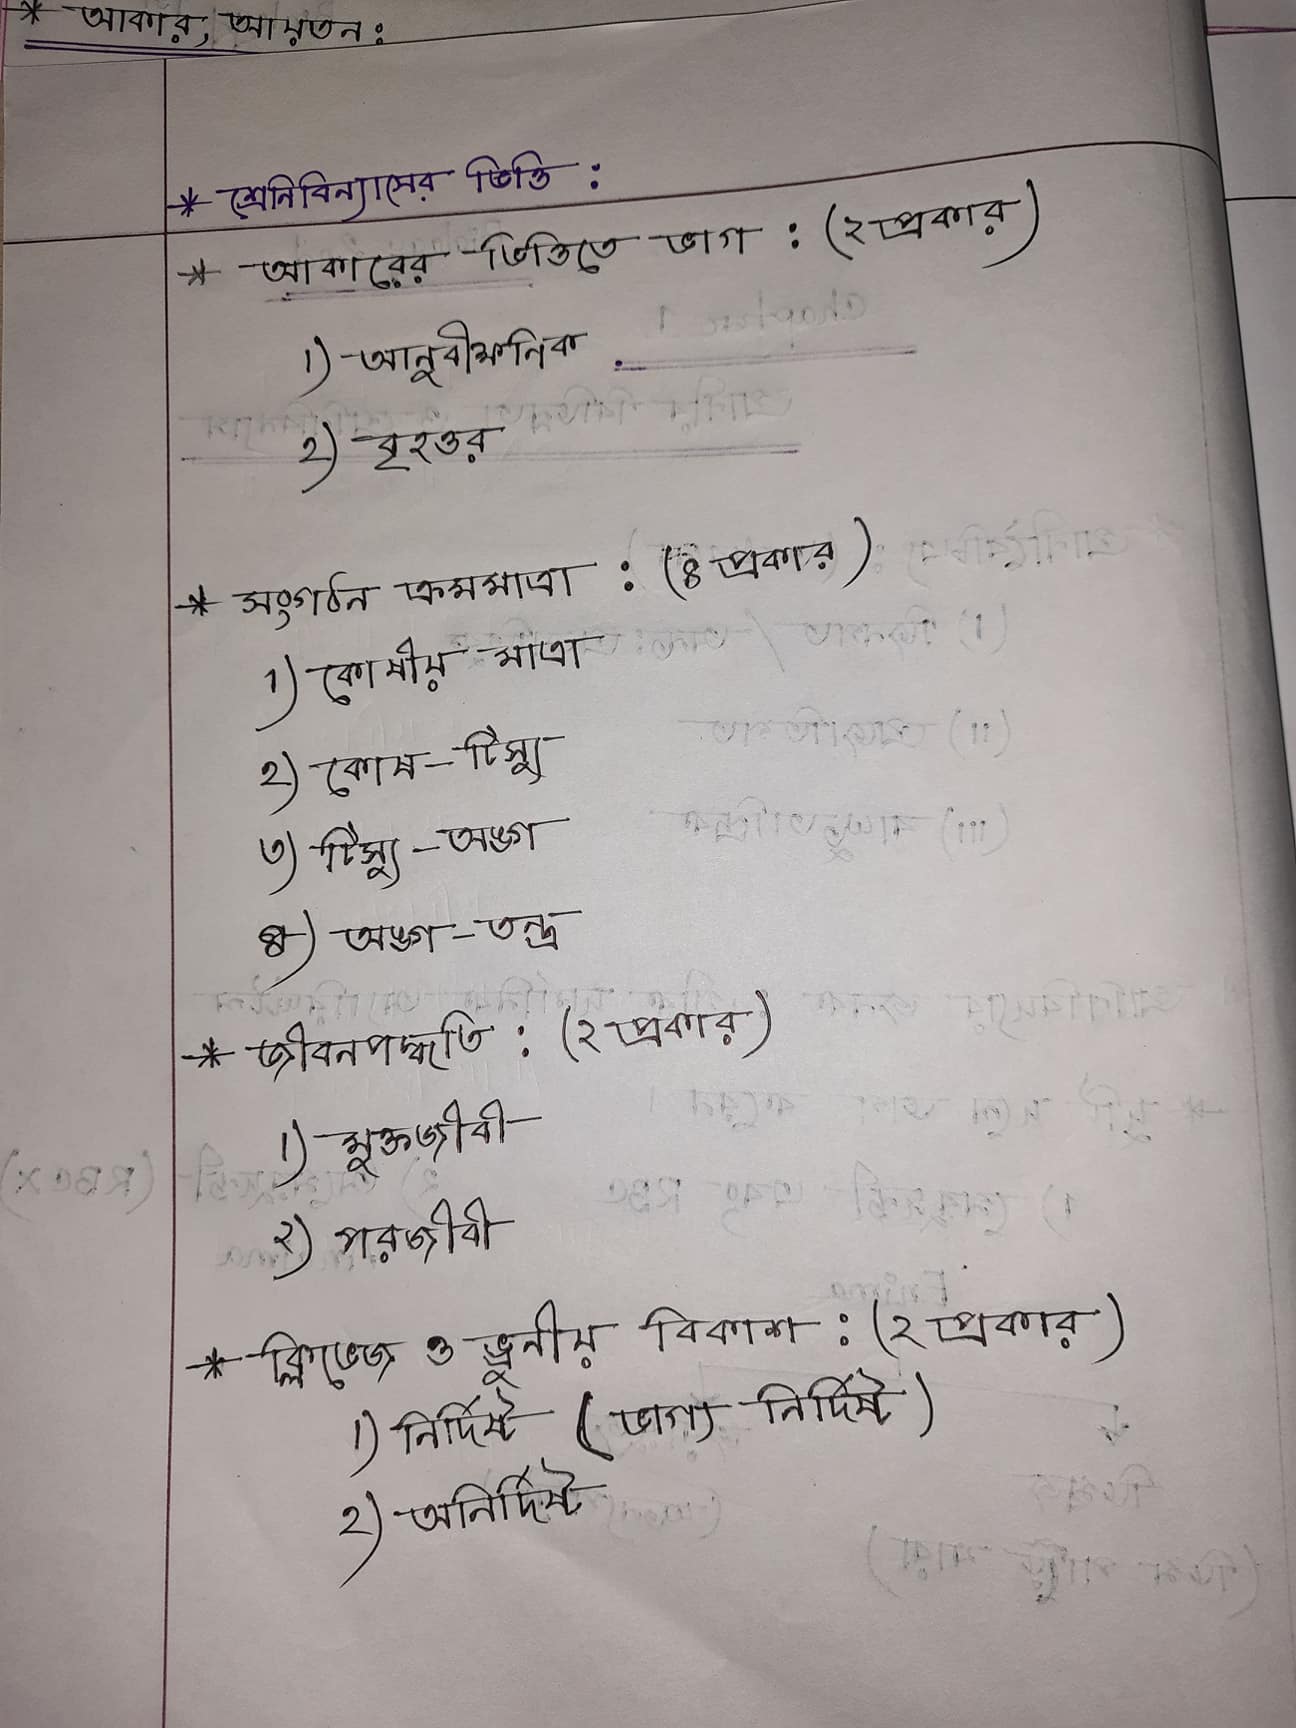 * আকার, আয়তন :
* শ্রেনিবিন্যাসের ভিত্তি :
* আকারের ভিত্তিতে ভাগ : (২ প্রকার)
১) আনুবীক্ষনিক
২) বৃহত্তর
* সংগঠন ক্রমমাত্রা : (৪ প্রকার)
১) কোষীয় মাত্রা
২) কোষ - টিস্যু
৩) টিস্যু - অঙ্গ
৪) অঙ্গ - তন্ত্র
* জীবনপদ্ধতি : (২ প্রকার)
১) মুক্তজীবী
২) পরজীবী
* ক্লিভেজ ও ভ্রুনীয় বিকাশ : (২ প্রকার)
১) নির্দিষ্ট (ভাগ্য নির্দিষ্ট)
২) অনির্দিষ্ট